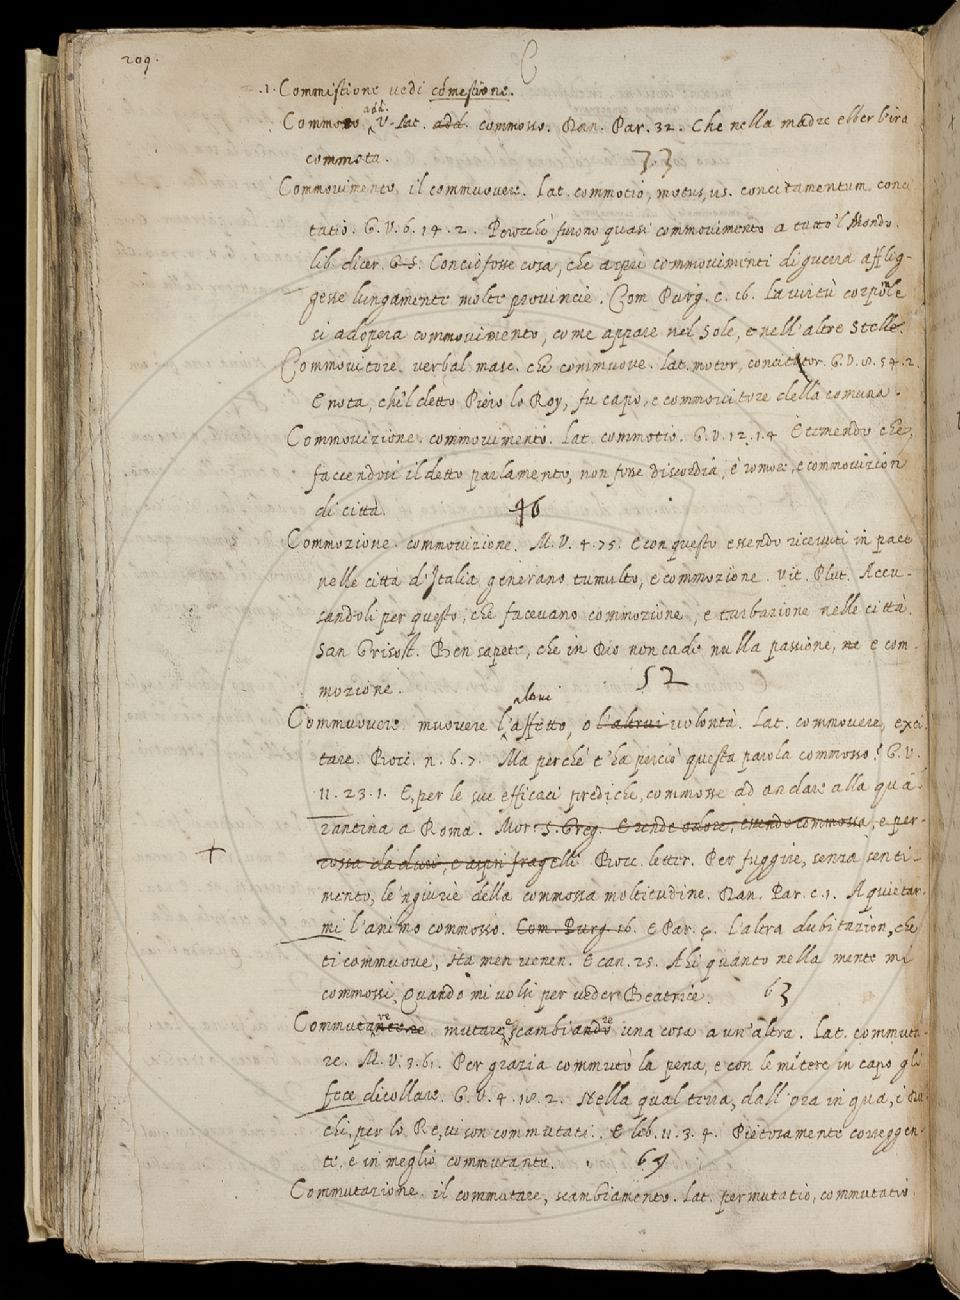 209.
C
.1. Commistione vedi comestione.
Commoto add. V. Lat. add. commosso. Dan. Par. 32. Che nella madre ebber l'ira
commota.
33
Commovimento, il commuovere. Lat. commotio, motus, us. concitamentum, conci
tatio. G. V. 6. 14. 2. Perocchè furono quasi commovimento a tutto 'l Mondo.
lib. dicer. G. S. Conciofosse cosa, che aspri commovimenti di guerra afflig-
gesse lungamente molte provincie. Com. Purg. c. 16. La virtù corporale
si adopera commovimento, come appare nel Sole, e nell'altre Stelle.
Commovitore. verbal masc. che commuove. Lat. motor, concitator. G. V. 8. 54. 2.
E nota, che 'l detto Piero lo Roy, fu capo, e commovitore della comuna.
Commovizione. commovimento. Lat. commotio. G. V. 12. 14 E temendo che,
faccendosi il detto parlamento, non fosse discordia, e romore, e commovizion
di città.
46
Commozione. commovizione. M. V. 4. 75. E con questo essendo ricevuti in pace
nelle città d'Italia, generano tumulto, e commozione. Vit. Plut. Accu-
sandoli per questo, che facevano commozione, e turbazione nelle città
San Grisost. Ben sapete, che in Dio non cade nulla passione, ne e com-
mozione.
52
Commuovere. muovere l'altrui affetto, o l'altrui volontà. Lat. commovere, exci-
tare. Bocc. n. 6. 7. Ma perchè t'ha perciò questa parola commosso? G. V.
11. 23. 1. E, per le sue efficaci prediche, commosse ad andare alla qua-
rantina a Roma. Mor. S. Greg. E rende odore, essendo commossa, e per-
cossa da duri, e aspri fragelli Bocc. letter. Per fuggire, senza senti-
mento, le 'ngiurie della commossa moltitudine. Dan. Par. c. 1. A quietar-
mi l'animo commosso. Com. Purg. 16. E Par. 4. L'altra dubitazion, che
ti commuove, Ha men venen. E can. 25. Ahi quanto nella mente mi
commossi, Quando mi volsi per veder Beatrice.
63
Commutare mutare, e scambiare una cosa a un'altra. Lat. commuta-
re. M. V. 3. 61. Per grazia commutò la pena, e con le mitere in capo gli
fece dicollare. G. V. 4. 18. 2. Nella qual terra, dall'ora in qua, i
chi, per lo Re, vi son commutati. E lib. 11. 3. 4. Pietosamente correggen-
te, e in meglio commutante.
69
Commutazione. il commutare, scambiamento. Lat. permutatio, commutatio